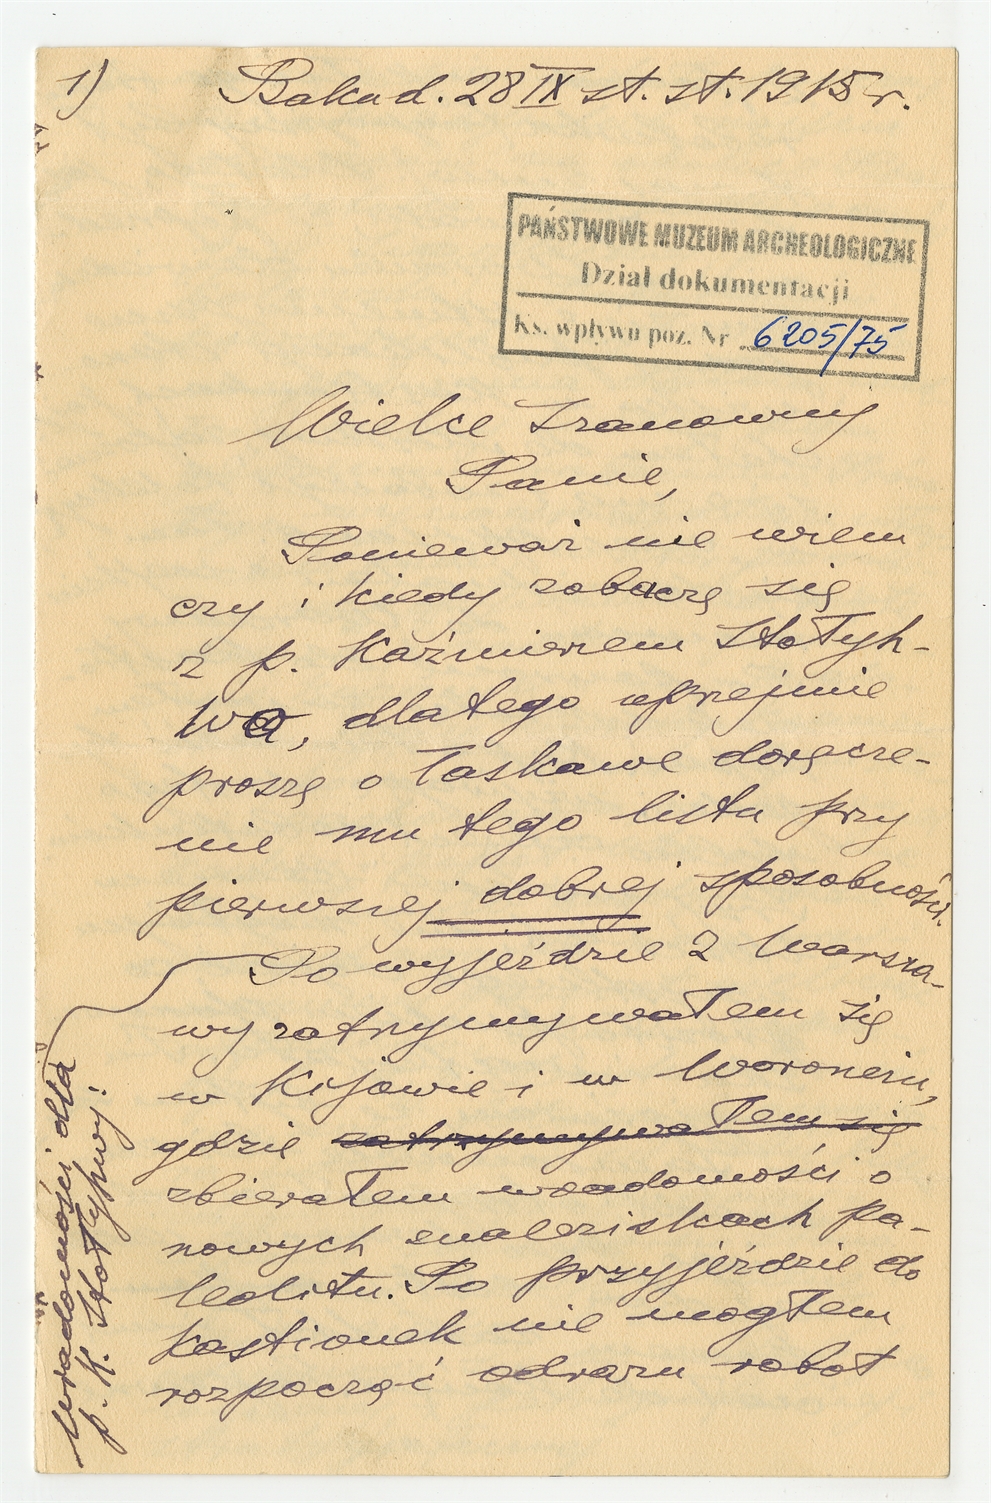 1)
Baku d. 28 IX st. st. 1915 r.
PAŃSTWOWE MUZEUM ARCHEOLOGICZNE
Dział dokumentacji
Ks. wpływu poz. Nr 6205/75
Wielce Szanowny
Panie,
Ponieważ nie wiem
czy i kiedy zobaczę się
z p. Kaźmierzem Stołyh-
wą, dlatego uprzejmie
proszę o łaskawe doręcze-
nie mu tego listu przy
pierwszej dobrej sposobności.
Po wyjeździe z Warsza-
wy zatrzymywałem się
w Kijowie i w Woroneżu,
gdzie zatrzymywałem się
zbierałem wiadomości o
nowych znaleziskach pa-
leolitu. Po przyjeździe do
Kastionek nie mogłem
rozpocząć odrazu robot
Wiadomości dla
p. K. Stołyhwy!